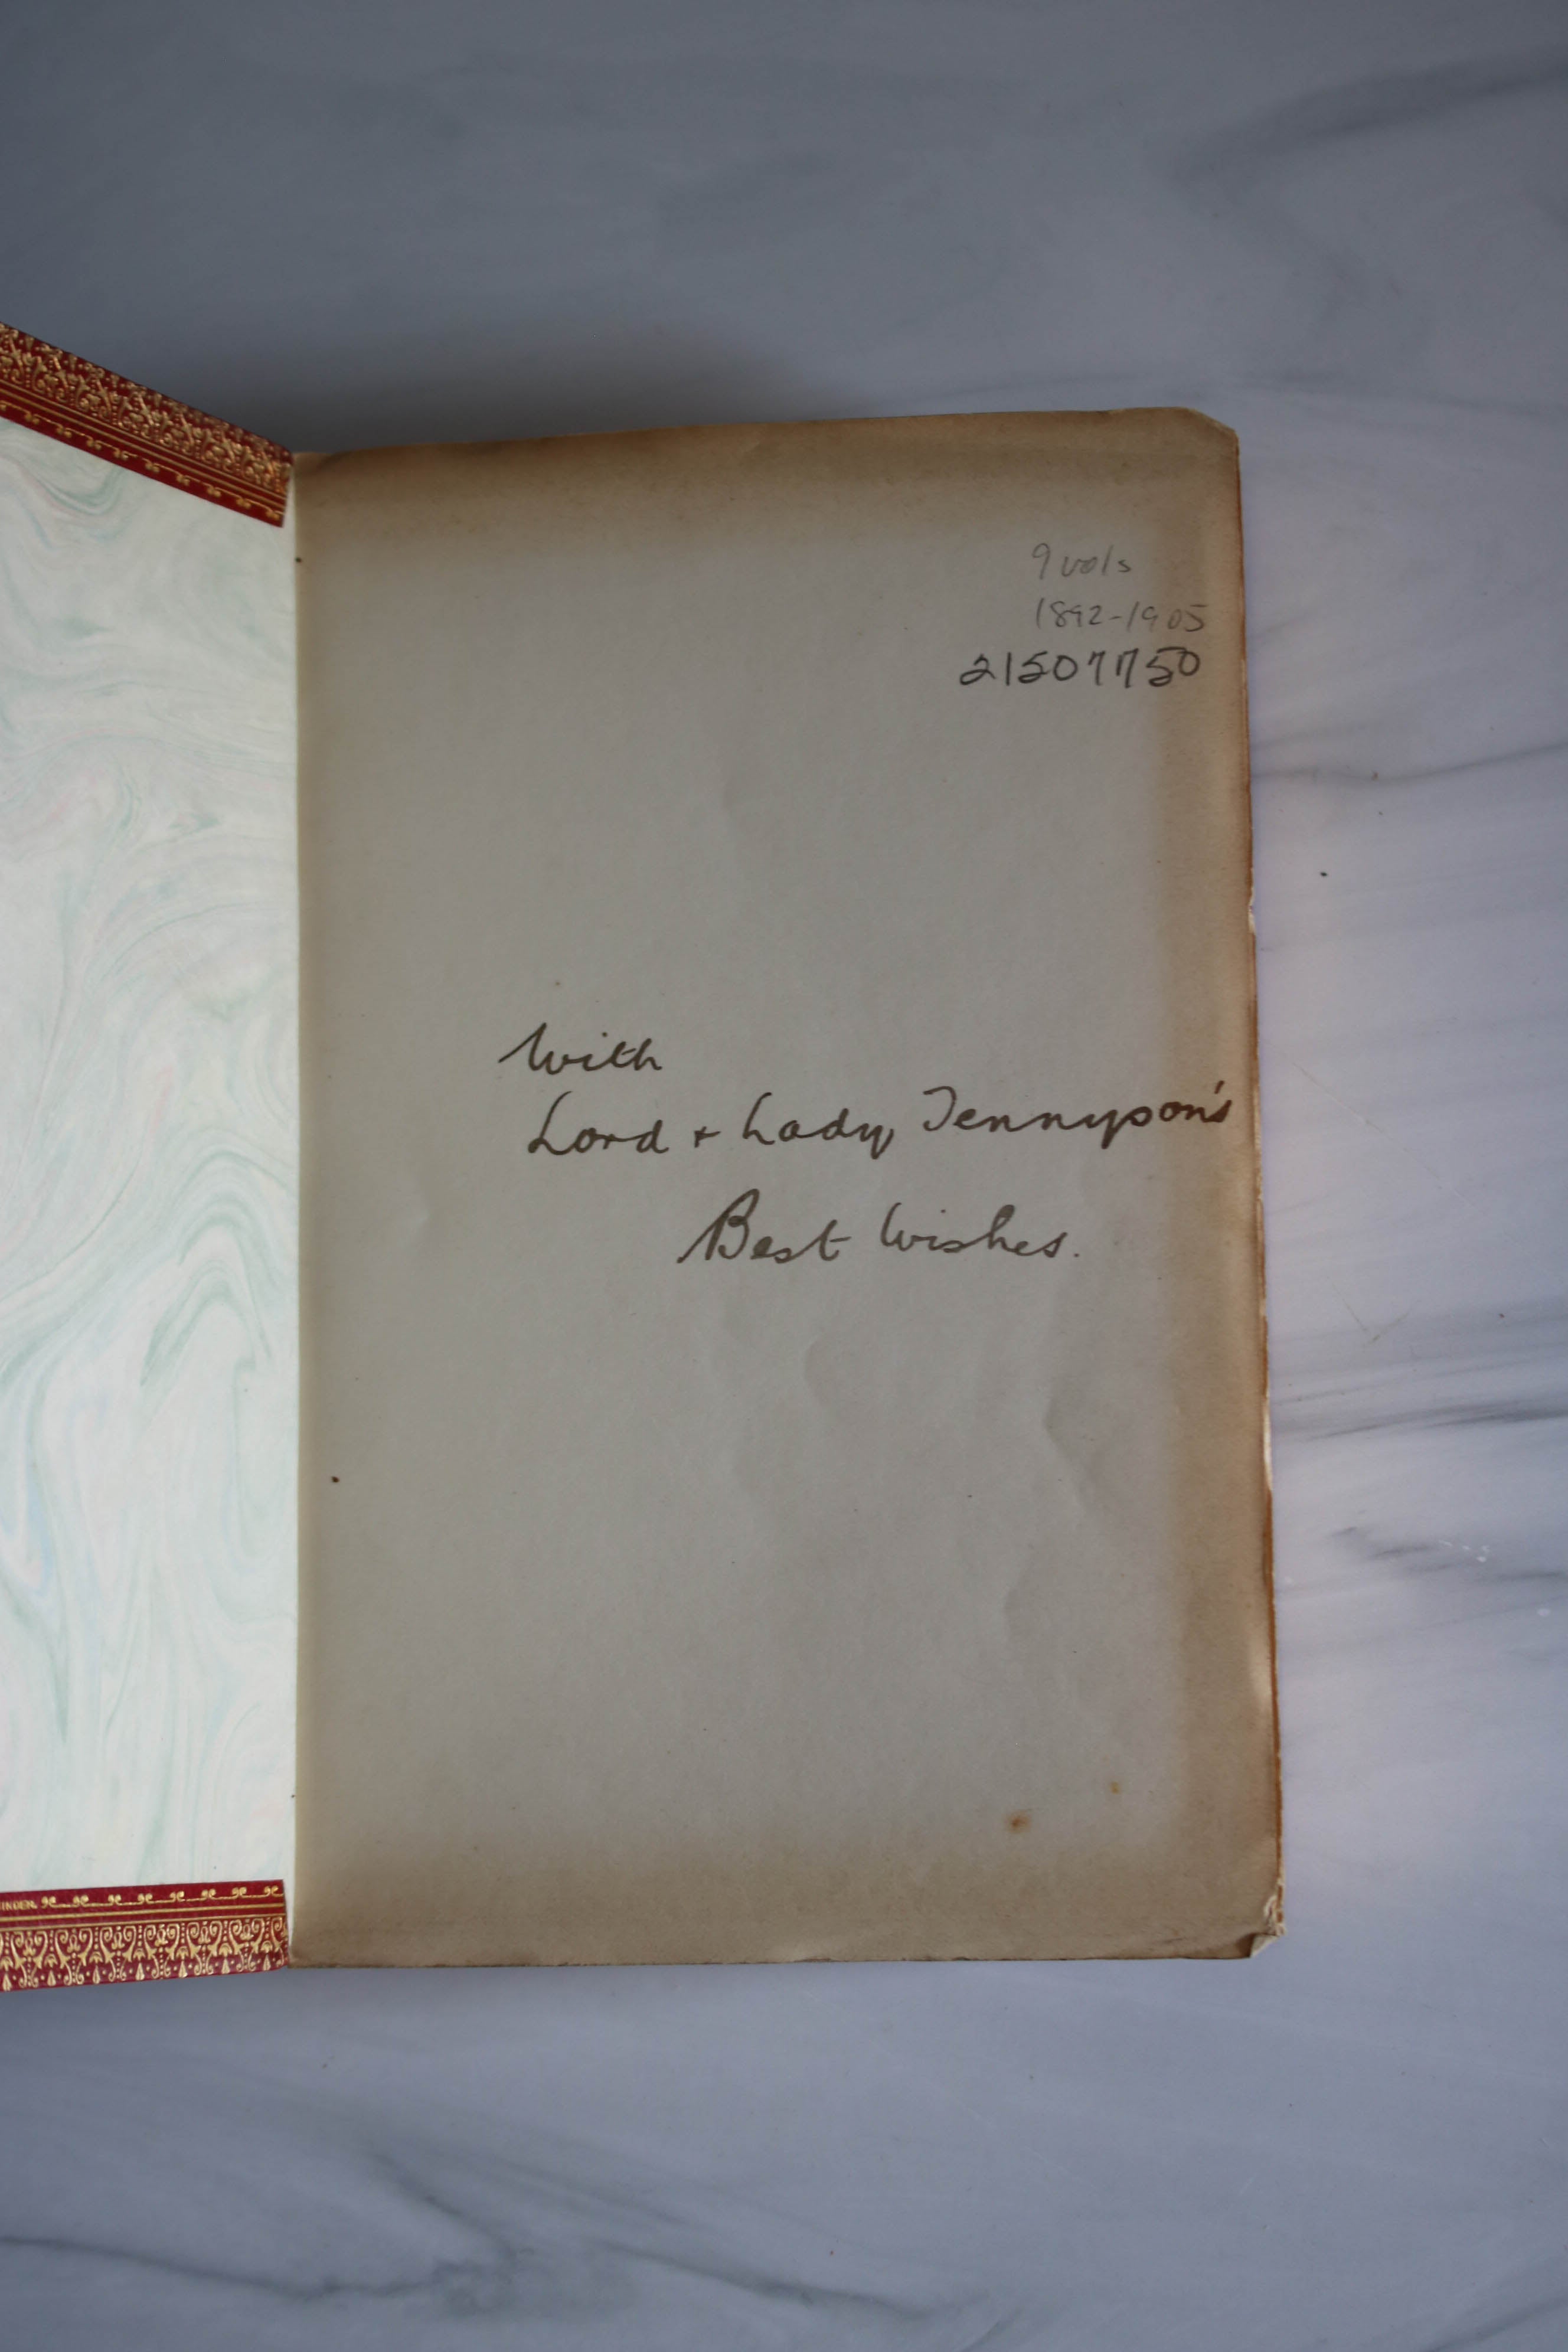 9 vols
1892-1905
21507750
With
Lord + Lady Tennyson's
Best Wishes.